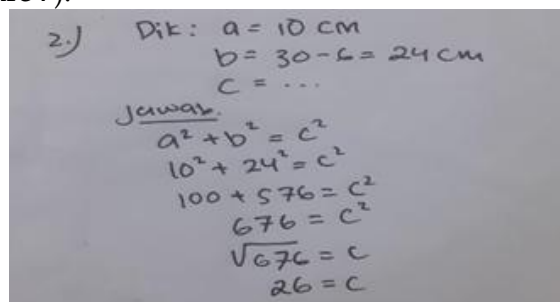 2.) Dik : a = 10 cm
b = 30 - 6 = 24 cm
c = ...
Jawab.
a² + b² = c²
10² + 24² = c²
100 + 576 = c²
676 = c²
√676 = c
26 = c